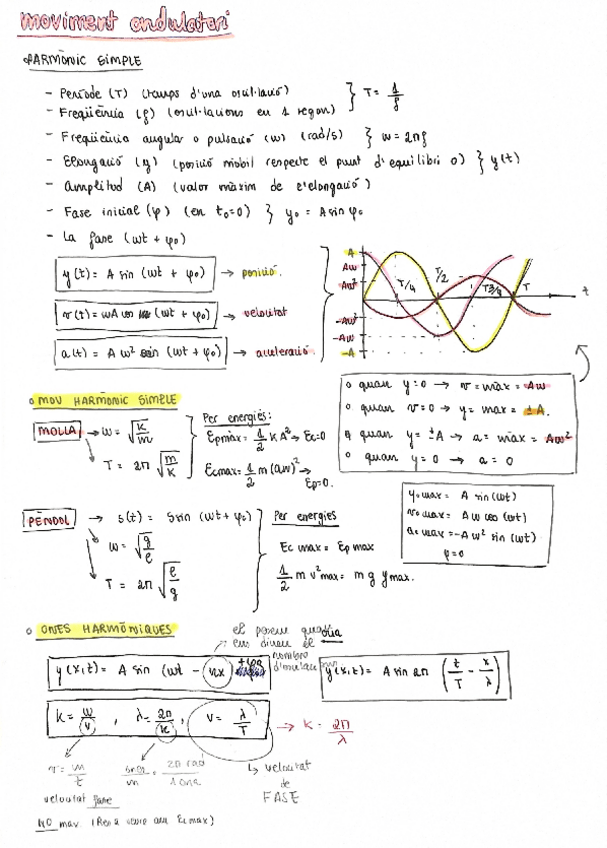 moviment ondulatori
HARMÒNIC SIMPLE
- Període (T) (temps d'una oscil·lació) } T = 1/f
- Freqüència (f) (oscil·lacions en 1 segon)
- Freqüència angular o pulsació (w) (rad/s) } w = 2πf
- Elongació (y) (posició mòbil respecte el punt d'equilibri o) } y(t)
- Amplitud (A) (valor màxim de l'elongació)
- Fase inicial (φ) (en t₀=0) } y₀ = A sin φ₀
- La fase (wt + φ₀)
y(t) = A sin (wt + φ₀) → posició.
v(t) = wA cos (wt + φ₀) → velocitat
a(t) = A w² sin (wt + φ₀) → acceleració
A
Aw
Aw²
-Aw²
-Aw
-A
T/4
T/2
T3/4
T
t
o quan y=0 → v = màx = Aw
o quan v=0 → y = max = ±A.
o quan y = ±A → a = màx = Aw²
o quan y = 0 → a = 0
o MOV HARMÒNIC SIMPLE
MOLLA → w = √k/m
T = 2π √m/k
Per energies:
Epmàx = 1/2 k A² → Ec=0
Ecmax = 1/2 m (aw)² → Ep=0.
y₀max = A sin (wt)
v₀max = A w cos (wt)
a₀max = -A w² sin (wt)
φ=0
PÈNDOL → s(t) = Ssin (wt + φ₀)
w = √g/l
T = 2π √l/g
Per energies
Ec max = Ep max
1/2 m v²max = m g ymax.
o ONES HARMÒNIQUES
el posem quan
ens diuen el
nombre
d'ones
y(x,t) = A sin (wt - kx +φ₀)
y(x,t) = A sin 2π (t/T - x/λ)
k = w/v , λ = 2π/k , v = λ/T → k = 2π/λ
v = m/t
ones/m = 2π rad/1 ona
↳ velocitat
de
FASE
velocitat fase